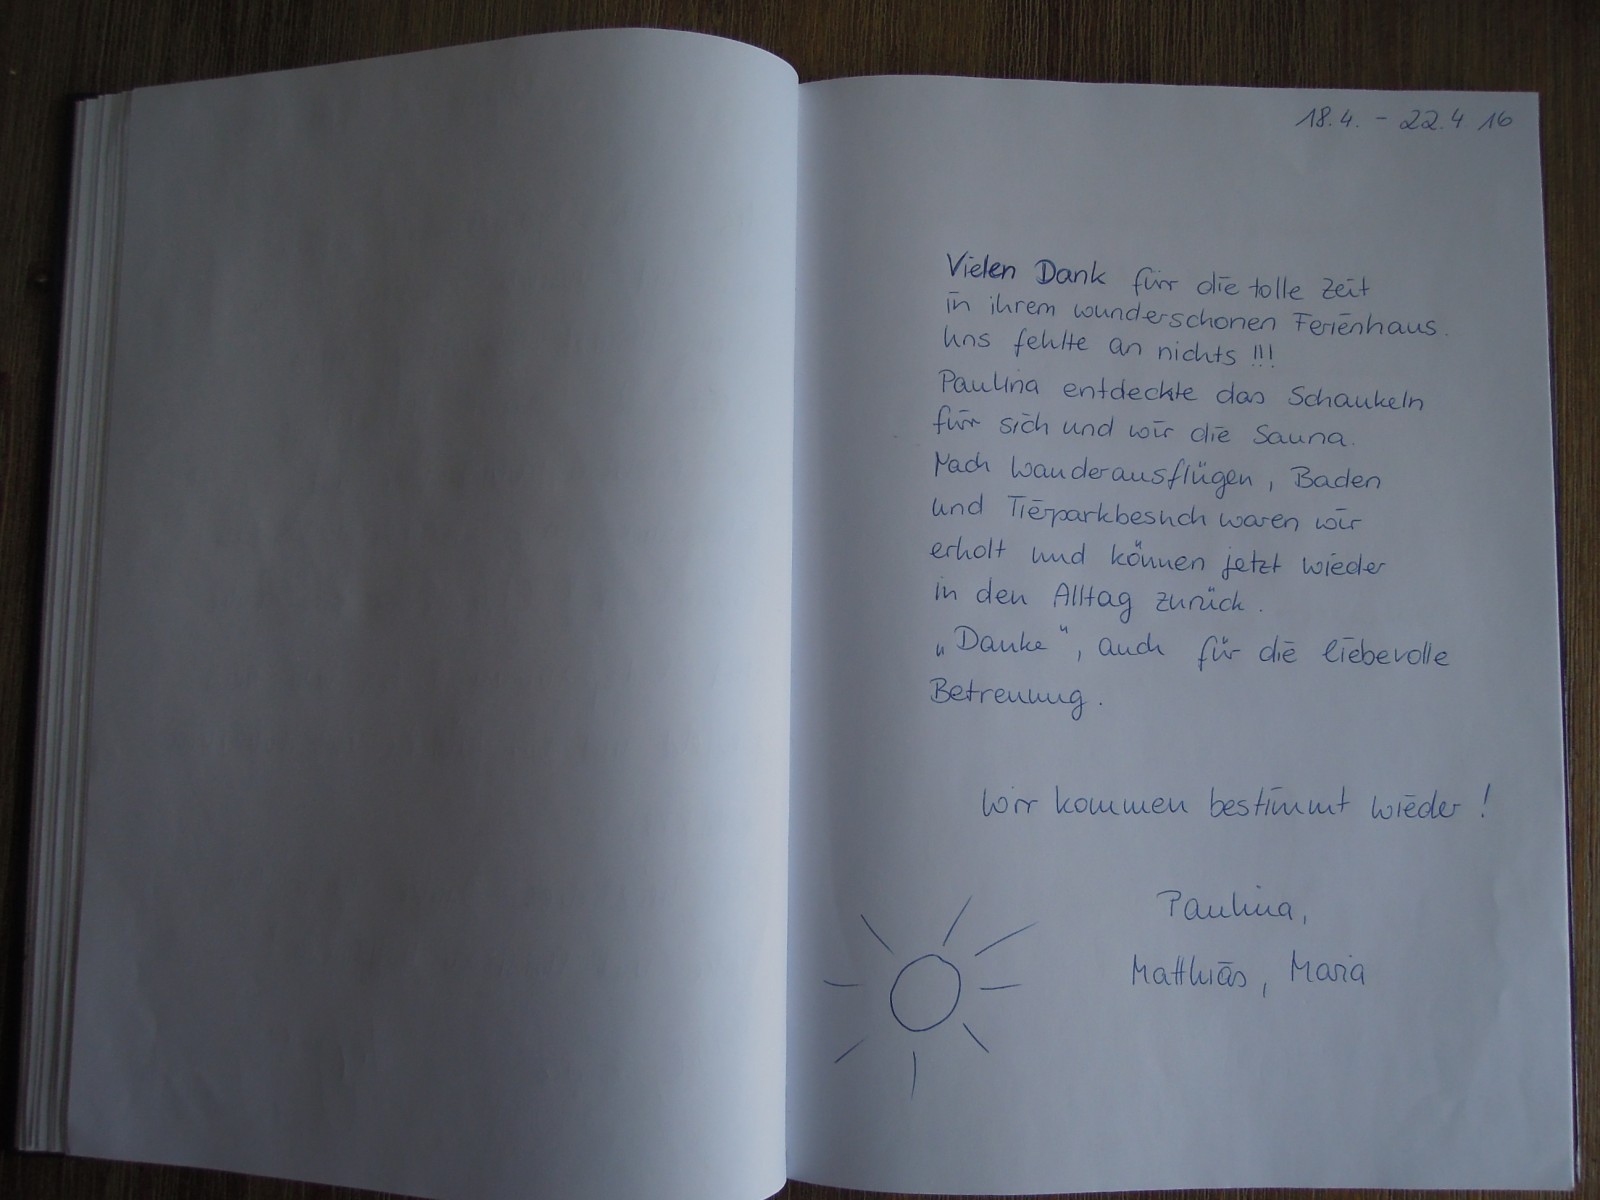 18.4. - 22.4 16
Vielen Dank für die tolle Zeit
in ihrem wunderschonen Ferienhaus.
Uns fehlte an nichts !!!
Paulina entdeckte das Schaukeln
für sich und wir die Sauna.
Nach Wanderausflügen, Baden
und Tierparkbesuch waren wir
erholt und können jetzt wieder
in den Alltag zurück.
„Danke", auch für die liebevolle
Betreuung.
Wir kommen bestimmt wieder!
Paulina,
Matthias, Maria